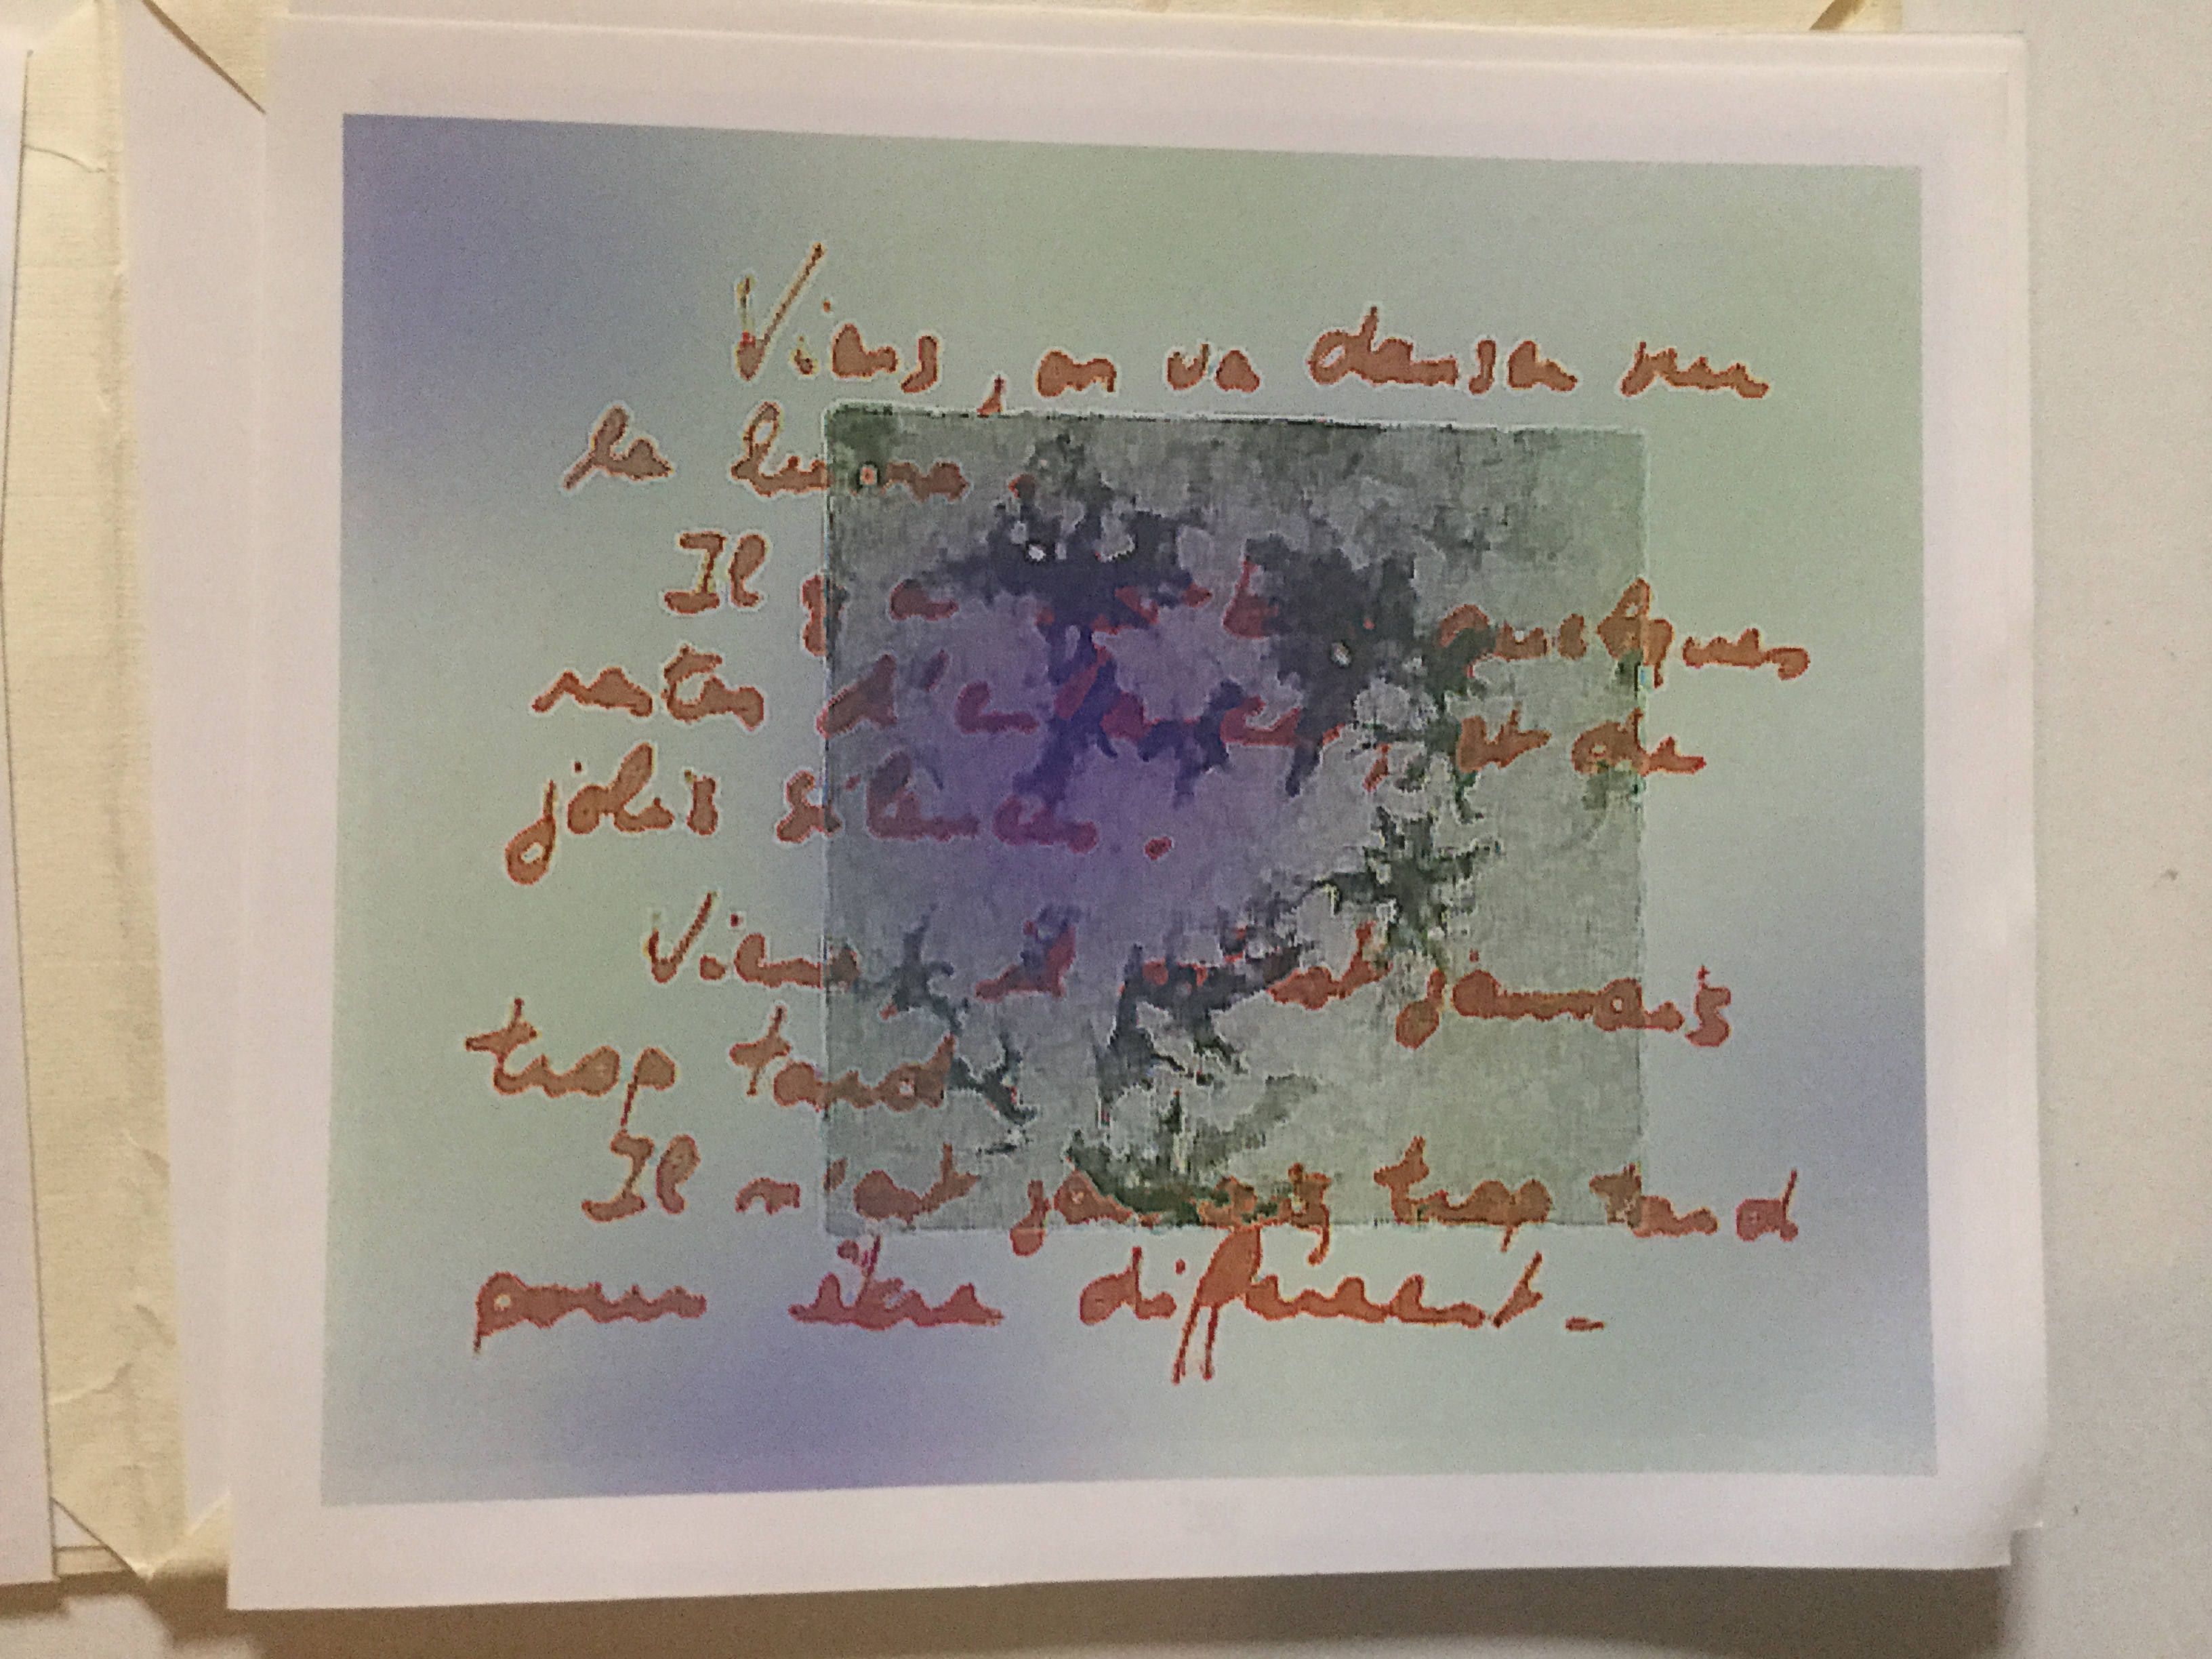 Viens, on va danser sur
la lune.
Il y a quelques
restes d'enfances, et de
jolis silences.
Viens, il n'est jamais
trop tard
Il n'est jamais trop tard
pour être différent.